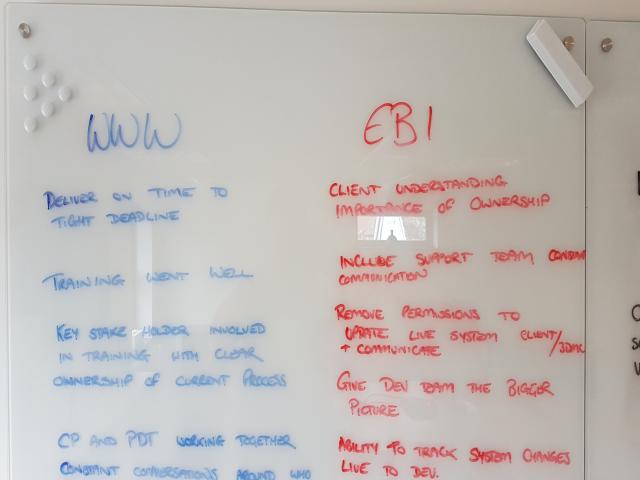 WWW
DELIVER ON TIME TO
TIGHT DEADLINE
TRAINING WENT WELL
KEY STAKE HOLDER INVOLVED
IN TRAINING WITH CLEAR
OWNERSHIP OF CURRENT PROCESS
CP AND PDT WORKING TOGETHER
CONSTANT CONVERSATIONS AROUND WHO
EBI
CLIENT UNDERSTANDING
IMPORTANCE OF OWNERSHIP
INCLUDE SUPPORT TEAM
COMMUNICATION
REMOVE PERMISSIONS TO
UPDATE LIVE SYSTEM CLIENT/
+ COMMUNICATE
GIVE DEV TEAM THE BIGGER
PICTURE
ABILITY TO TRACK SYSTEM CHANGES
LIVE TO DEV.